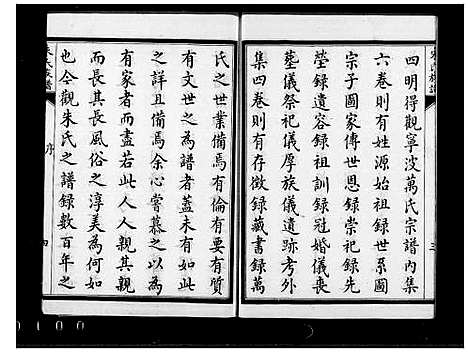 四明得觀寧波萬氏宗譜內集
六卷則有姓源始祖世系圖
宗子圖家傳世恩錄崇祀錄先
塋錄遺容錄祖訓錄冠婚儀喪
葬儀祭祀儀厚族儀遺跡考外
集四卷則有存徵錄藏書錄萬
三
氏之世業備焉有倫有要有質
有文世之為譜者蓋未有如此
之詳且備焉余心嘗慕之以為
有家者而盡若此人人親其親
而長其長風俗之淳美為何如
也今觀朱氏之譜錄數百年之
序
四
0100